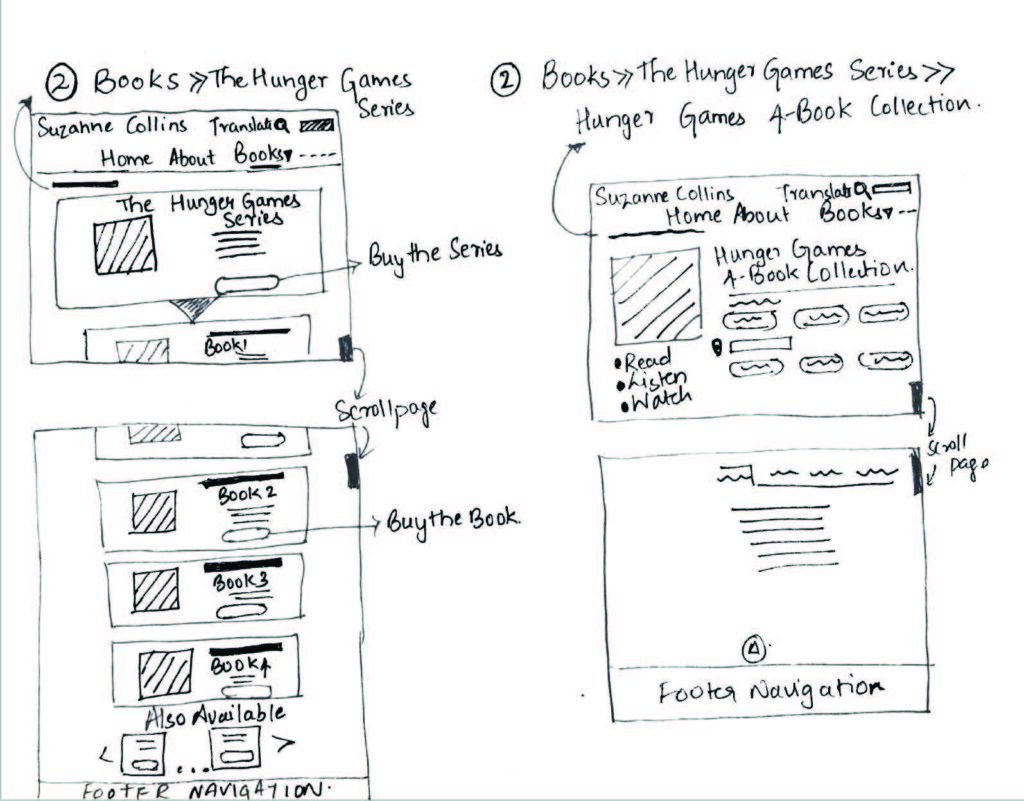 ② Books >> The Hunger Games
Series
Suzanne Collins Translate
Home About Books▾ ----
The Hunger Games
Series
Buy the Series
Book1
Scroll page
Book 2
Buy the Book.
Book3
Book4
Also Available
< ... >
FOOTER NAVIGATION.
② Books >> The Hunger Games Series >>
Hunger Games 4-Book Collection.
Suzanne Collins Translate
Home About Books▾ ---
Hunger Games
4-Book Collection.
• Read
• Listen
• Watch
Scroll
page
Footer Navigation